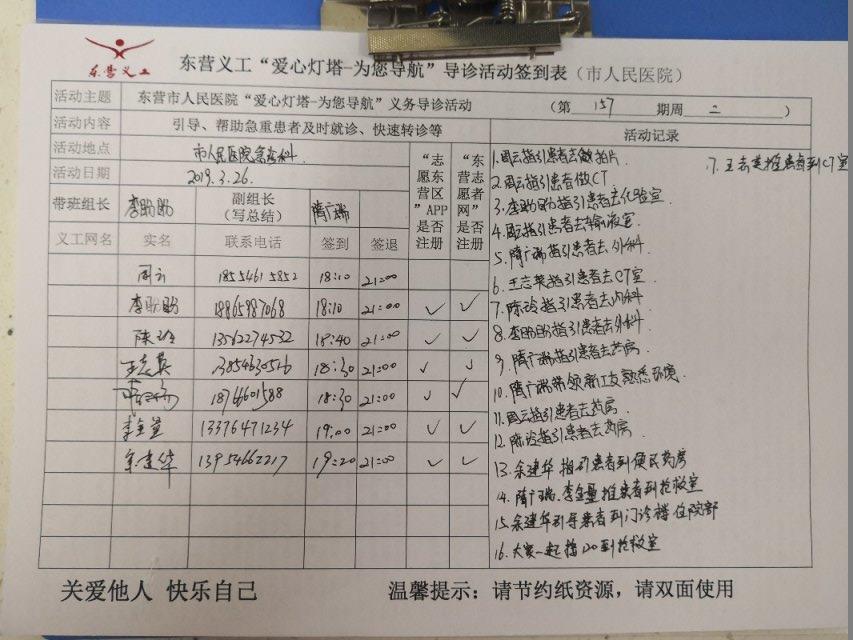 东营义工
东营义工“爱心灯塔-为您导航”导诊活动签到表（市人民医院）
活动主题 东营市人民医院“爱心灯塔-为您导航”义务导诊活动 （第 157 期周 二 ）
活动内容 引导、帮助急重患者及时就诊、快速转诊等 活动记录
活动地点 市人民医院急诊科
活动日期 2019.3.26.
带班组长 李盼盼 副组长（写总结） 隋广瑞
“志愿东营区”APP是否注册
“东营志愿者网”是否注册
义工网名 实名 联系电话 签到 签退
周云 18554615852 18:10 21:00
李盼盼 18865987068 18:10 21:00 ✓ ✓
陈玲 13562274532 18:40 21:00 ✓ ✓
王志英 18:30 21:00 ✓ ✓
18766601588 18:30 21:00 ✓ ✓
13376471234 19:00 21:00 ✓ ✓
余建华 13954662217 19:20 21:00 ✓ ✓
1.周云指引患者去做拍片.
2.周云指引患者做CT
3.李盼盼指引患者去化验室.
4.周云指引患者去输液室.
5.隋广瑞指引患者去外科.
6.王志英指引患者去CT室.
7.陈玲指引患者去内科
8.李盼盼指引患者去外科.
9.隋广瑞指引患者去药房.
10.隋广瑞带领新工友熟悉环境.
11.周云指引患者去药房.
12.陈玲指引患者去药房.
13.余建华指引患者到便民药房
14.隋广瑞.李金量推患者到抢救室
15.余建华引导患者到门诊楼住院部
16.大家一起推120到抢救室
17.王志英推患者到CT室
关爱他人 快乐自己
温馨提示：请节约纸资源，请双面使用